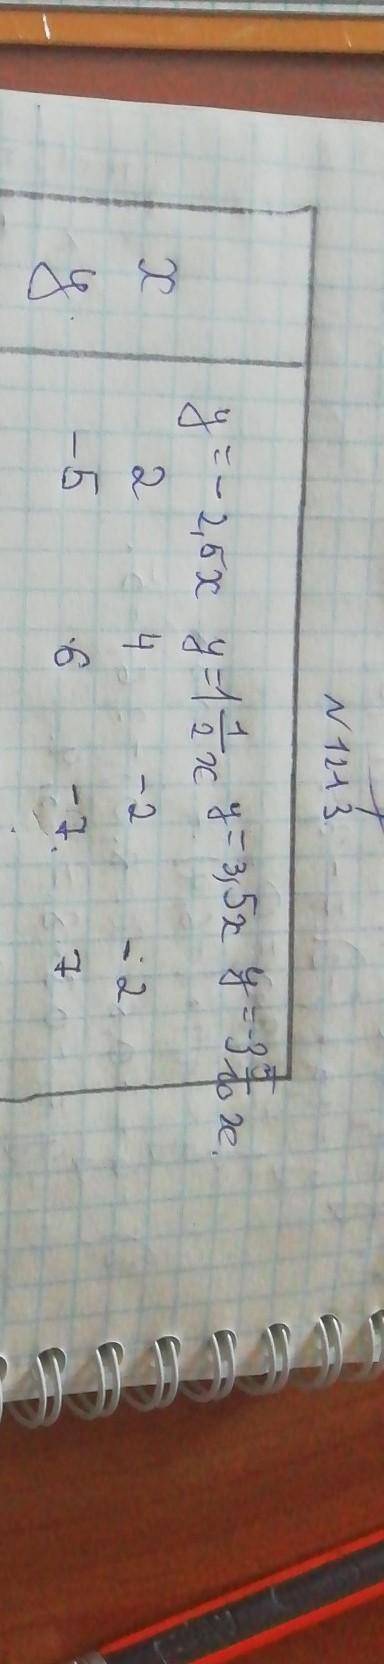 N 1213
y = - 2,5x y = 1 1/2 x y = 3,5x y = -3 5/10 x.
x 2 4 -2 -2
y -5 6 -7 7